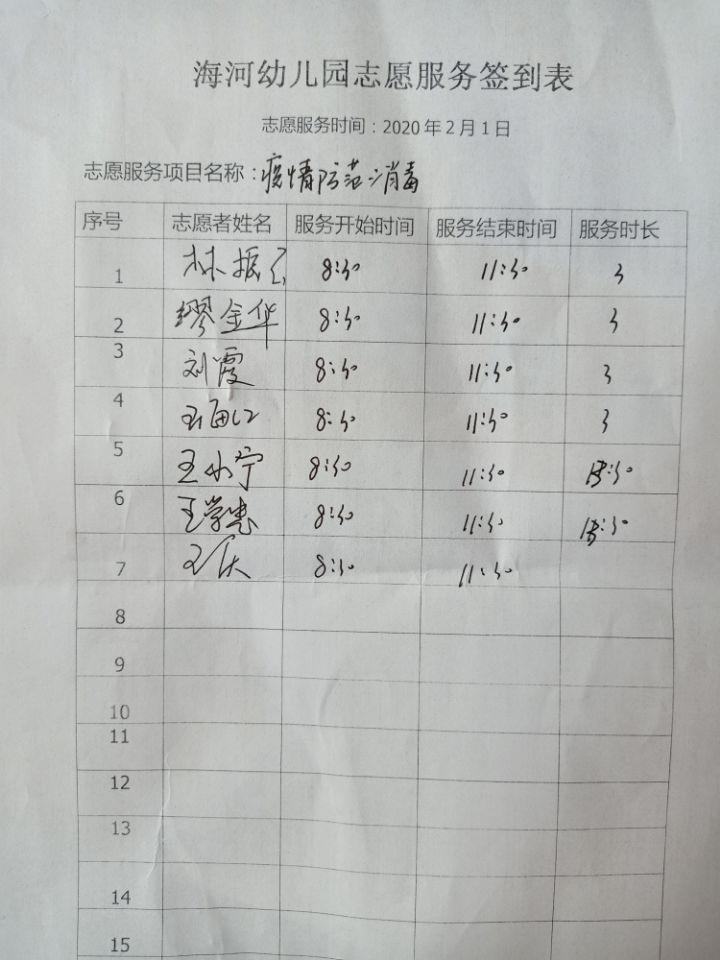 海河幼儿园志愿服务签到表
志愿服务时间：2020年2月1日
志愿服务项目名称：疫情防范消毒
序号 志愿者姓名 服务开始时间 服务结束时间 服务时长
1 林振 8:30 11:30 3
2 缪金华 8:30 11:30 3
3 刘霞 8:30 11:30 3
4 8:30 11:30 3
5 王小宁 8:30 11:30
6 王学忠 8:30 11:30
7 8:30 11:30
8
9
10
11
12
13
14
15